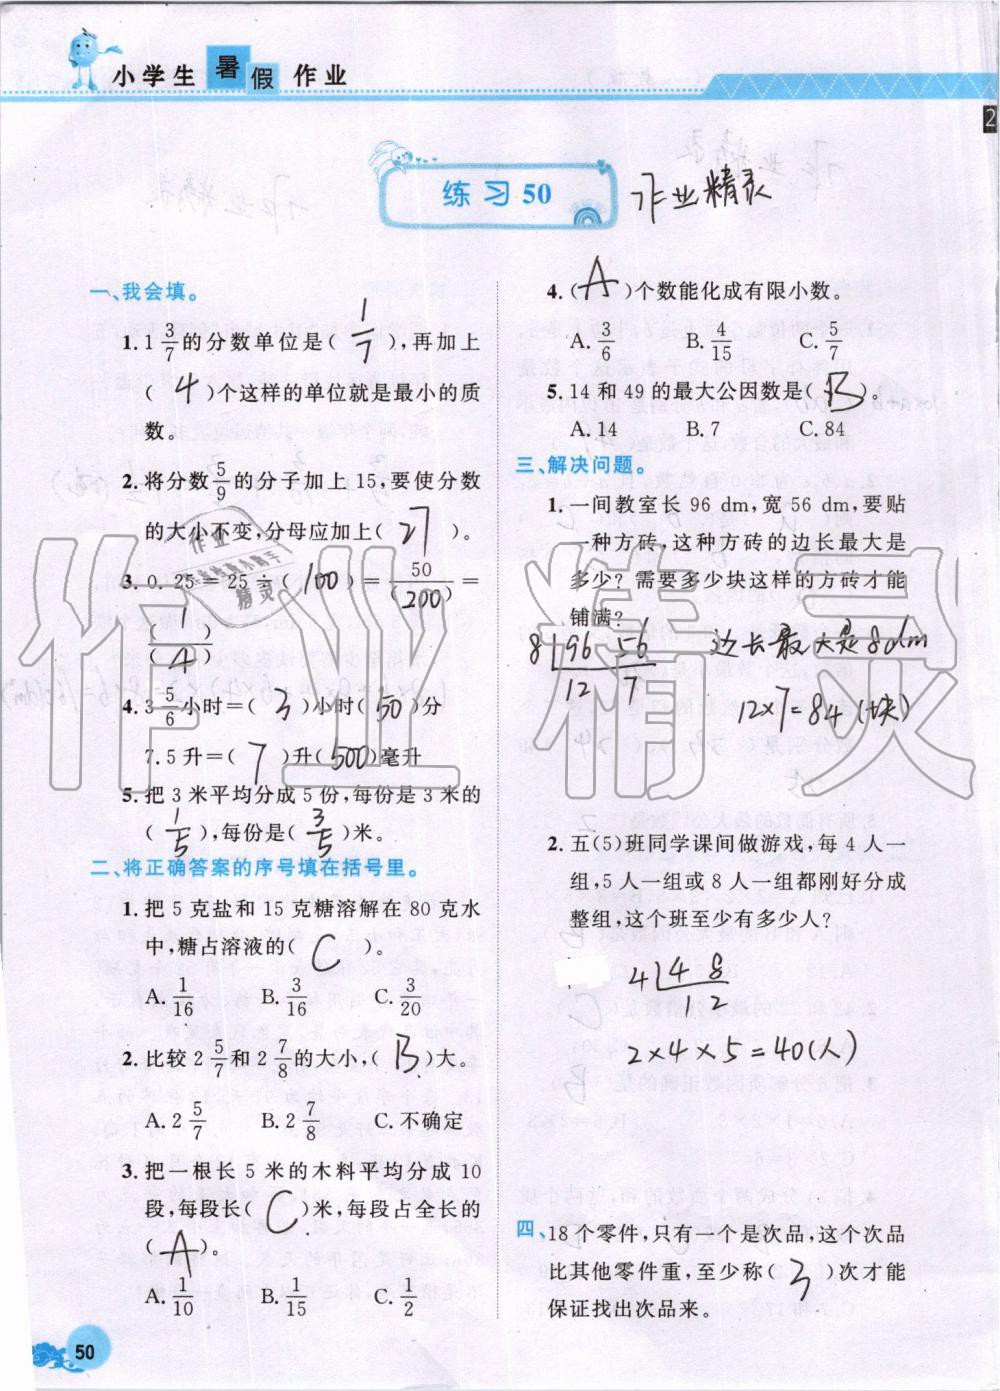 小学生暑假作业
练习50
作业精灵
一、我会填。
1. 1 3/7 的分数单位是( 1/7 ),再加上
( 4 )个这样的单位就是最小的质
数。
2. 将分数 5/9 的分子加上 15,要使分数
的大小不变,分母应加上( 27 )。
3. 0.25=25÷( 100 )= 50/(200) =
( 1 )/( 4 )
4. 3 5/6 小时=( 3 )小时( 50 )分
7.5升=( 7 )升( 500 )毫升
5. 把3米平均分成5份,每份是3米的
( 1/5 ),每份是( 3/5 )米。
二、将正确答案的序号填在括号里。
1. 把 5 克盐和 15 克糖溶解在 80 克水
中,糖占溶液的( C )。
A. 1/16 B. 3/16 C. 3/20
2. 比较 2 5/7 和 2 7/8 的大小,( B )大。
A. 2 5/7 B. 2 7/8 C. 不确定
3. 把一根长 5 米的木料平均分成 10
段,每段长( C )米,每段占全长的
( A )。
A. 1/10 B. 1/15 C. 1/2
4. ( A )个数能化成有限小数。
A. 3/6 B. 4/15 C. 5/7
5. 14 和 49 的最大公因数是( B )。
A. 14 B. 7 C. 84
三、解决问题。
1. 一间教室长 96 dm,宽 56 dm,要贴
一种方砖,这种方砖的边长最大是
多少? 需要多少块这样的方砖才能
铺满?
8 96 56 边长最大是8dm
12 7
12×7=84(块)
2. 五(5)班同学课间做游戏,每 4 人一
组,5 人一组或 8 人一组都刚好分成
整组,这个班至少有多少人?
4 4 8
1 2
2×4×5=40(人)
四、18 个零件,只有一个是次品,这个次品
比其他零件重,至少称( 3 )次才能
保证找出次品来。
50
2
作业精灵